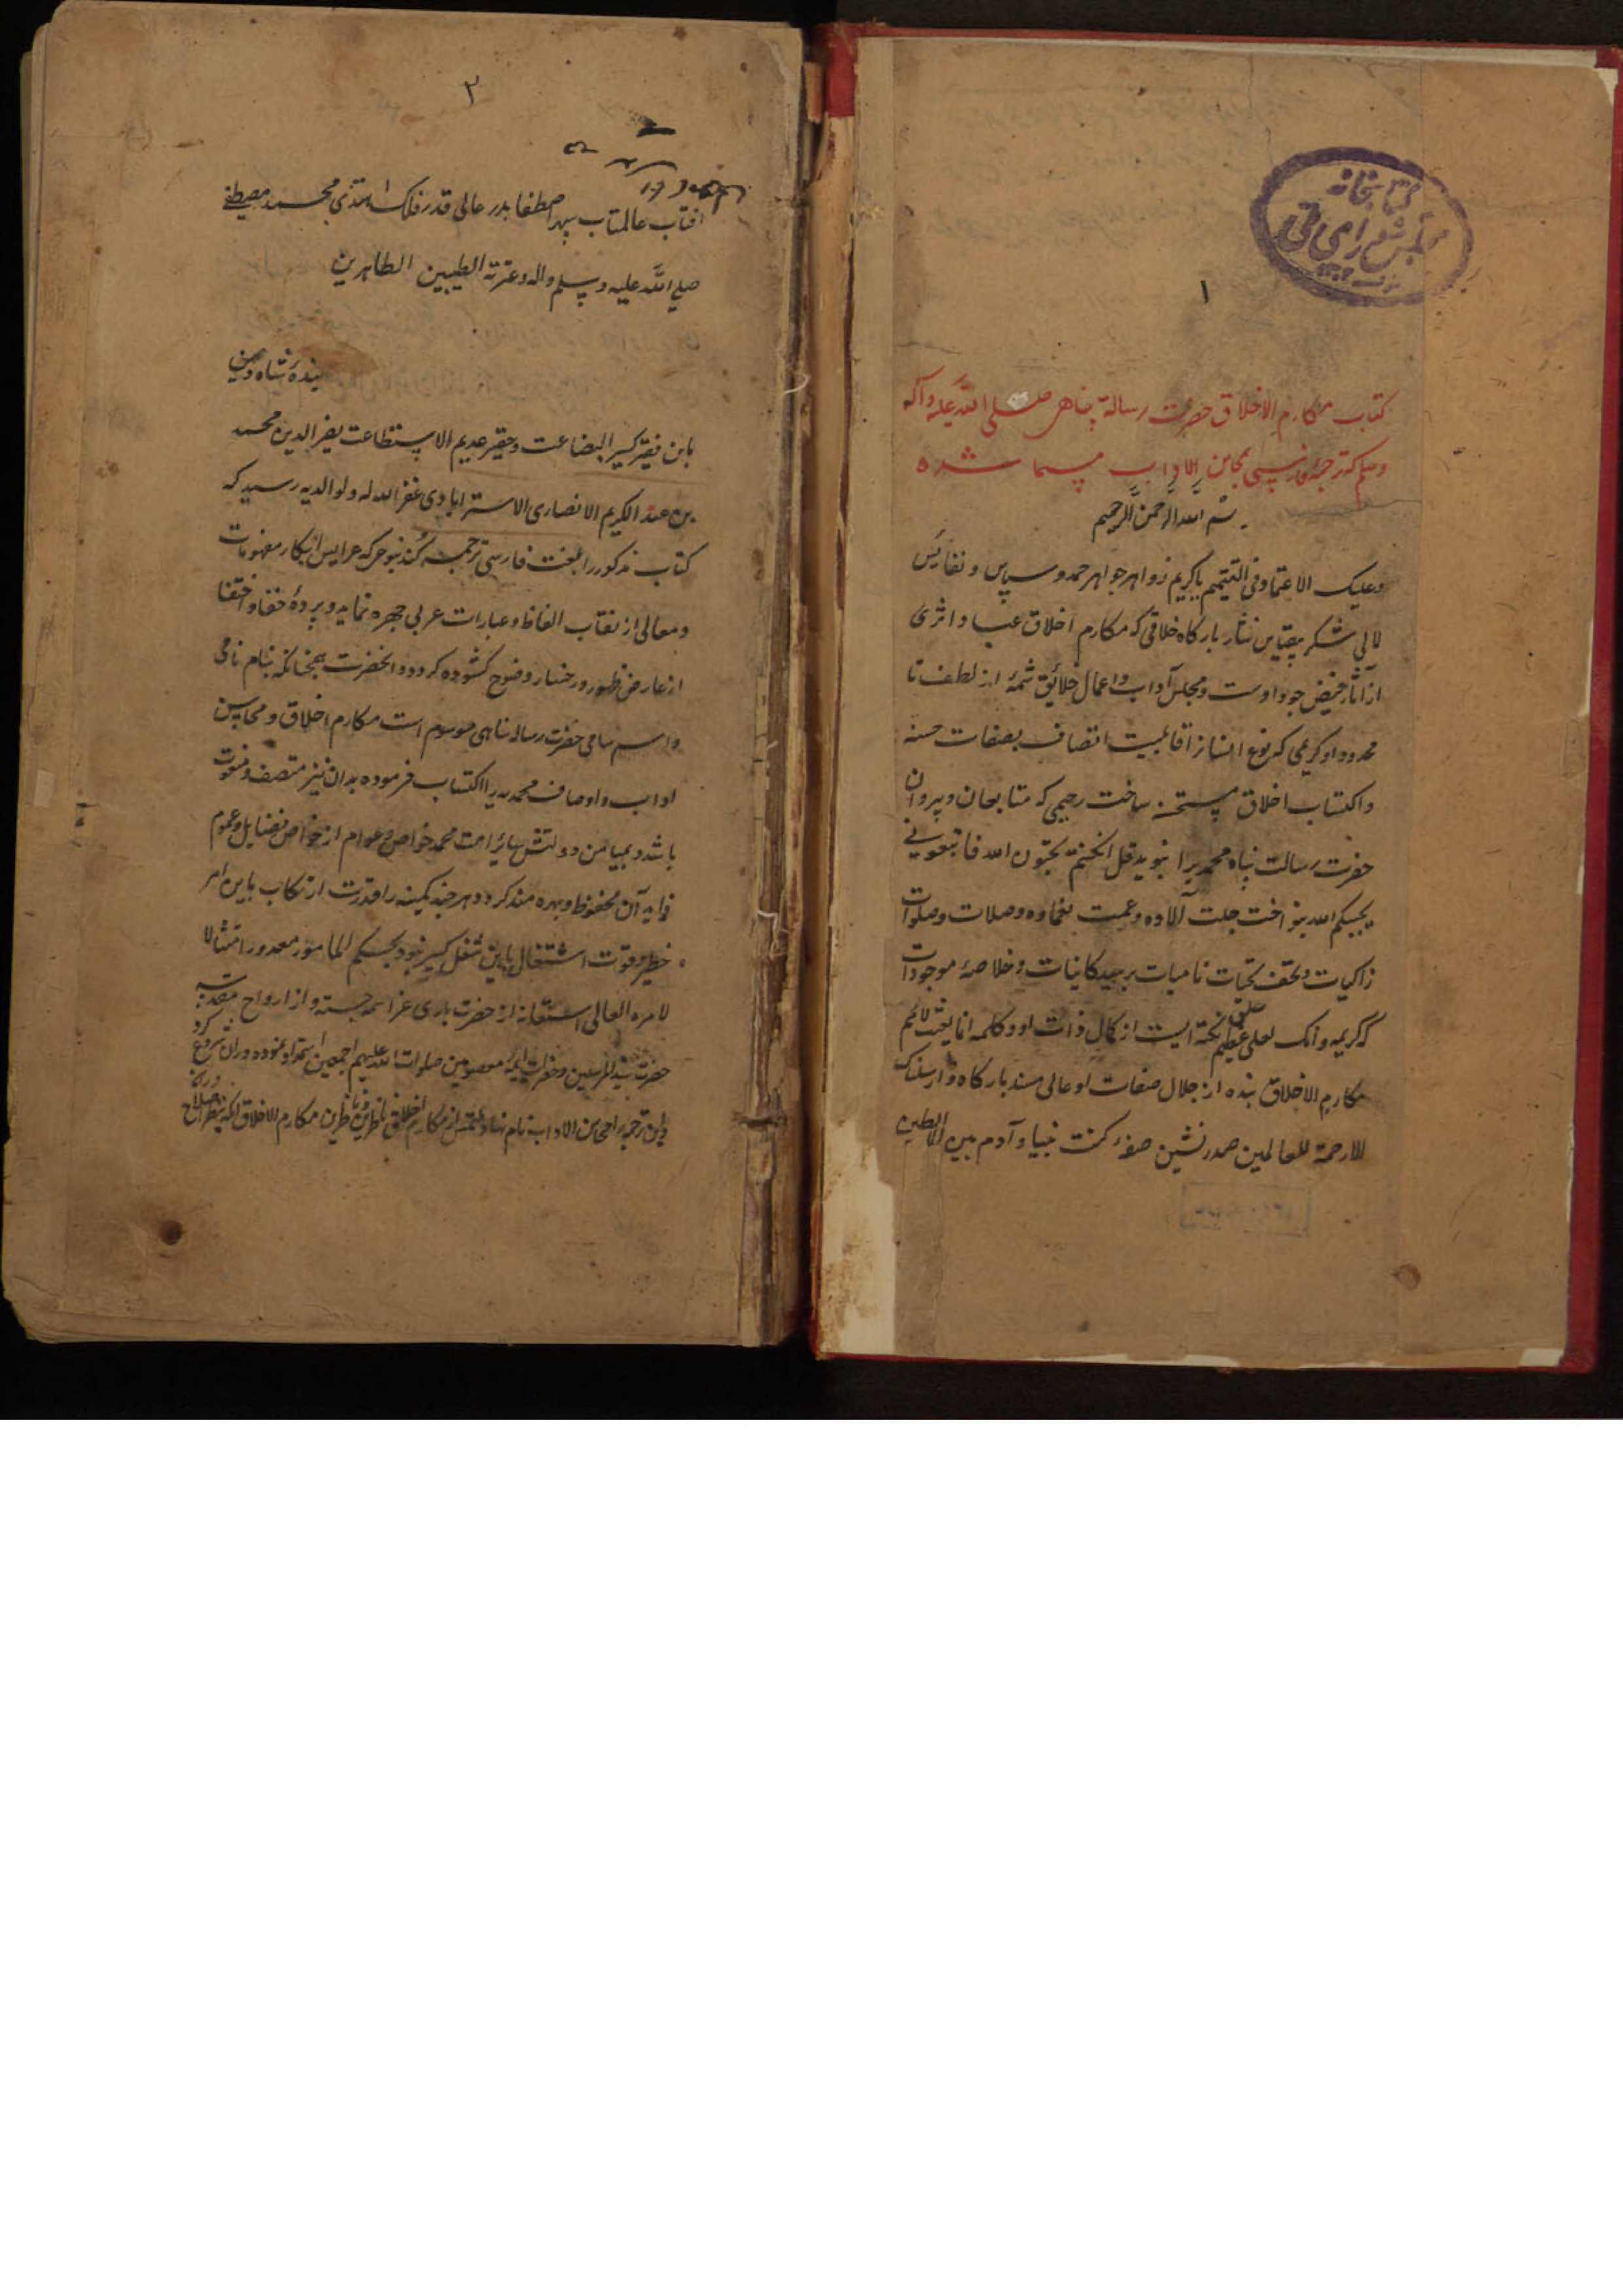 کتابخانه
مجلس شورای ملی
۱
کتاب مکارم الاخلاق حضرت رسالة پناهی صلی الله علیه وآله
وسلم که ترجمهٔ فارسی بمحاسن الاداب مسما شده
بسم الله الرحمن الرحیم
وعلیک الاعتماد فی التتمیم یا کریم زواهر جواهر حمد و سپاس و نفایس
لالی شکر بیقیاس نثار بارکاه خلاقی که مکارم اخلاق عباد اثری
از آثار فیض جود اوست و مجلس آداب و اعمال خلائق شمهٔ از لطف نا
محدود او کریمی که نوع انسانرا قابلیت اتصاف بصفات حسنه
واکتساب اخلاق مستحسنه ساخت رحیمی که متابعان و پیروان
حضرت رسالت پناه محمدیرا بنوید قل ان کنتم تحبون الله فاتبعونی
یحببکم الله بنواخت جلت آلاوه وعمت نعماوه وصلات وصلوات
زاکیات وتحف تحیات نامیات بر سید کاینات وخلاصهٔ موجودات
که کریمه وانک لعلی خلق عظیم نکتهٔ ایست از کمال ذات او وکلمه انا بعثت لاتمم
مکارم الاخلاق نبذه از جلال صفات او عالی مسند بارکاه وما ارسلناک
الا رحمة للعالمین صدرنشین صفهٔ کنت نبیا وآدم بین الماء والطین
۲
افتاب عالمتاب سپهر اصطفا بدر عالی قدر فلک اهتدی محمد مصطفی
صلی الله علیه وسلم واله وعترته الطیبین الطاهرین
باین فقیر کسیر البضاعت وحقیر عدیم الاستطاعت محمد
بن عبد الکریم الانصاری الاسترابادی غفر الله له ولوالدیه رسید که
کتاب مذکور را بلغت فارسی ترجمه کند بنوعی که عرایس ابکار مفهومات
ومعالی از نقاب الفاظ وعبارات عربی چهره نماید وپردهٔ خفا واختفا
از عارض ظهور ورخسار وضوح کشوده کردد وانحضرت همچنانکه بنام نامی
واسم سامی حضرت رساله پناهی موسوم است مکارم اخلاق ومحاسن
اداب واوصاف محمدیه را اکتساب فرموده بدان نیز متصف ومنعوت
باشد وبمیامن دولتش سائر امت محمد خواص وعوام از خواص فضایل وعموم
فواید آن محظوظ وبهره مند کردد وهر چند کمینه را قدرت ارتکاب باین امر
خطیر وقوت اشتغال باین شغل کبیر نبود بحکم المامور معذور امتثالا
لامره العالی استعانه از حضرت باری عز اسمه جسته واز ارواح مقدسه
حضرت سید المرسلین وحضرات ایمهٔ معصومین صلوات الله علیهم اجمعین استمداد نموده دران شروع کرد
واین ترجمه را محاسن الاداب نام نهاد وملتمس از مکارم اخلاق ناظرین مکارم الاخلاق انکه بنظر اصلاح